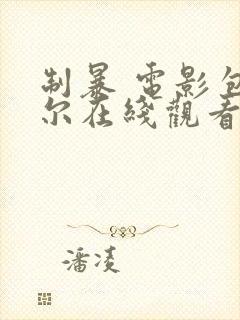 制暴 電影包
尔在綫觀看
潘凌